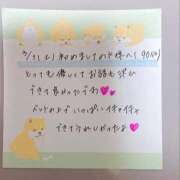 9/21(土)初めましてのお客様へ(90分)
とっても優しくてお話も楽しく
できて良かったです💕
ベッドの上でいっぱいイチャイチャ
できてうれしかったよ💕